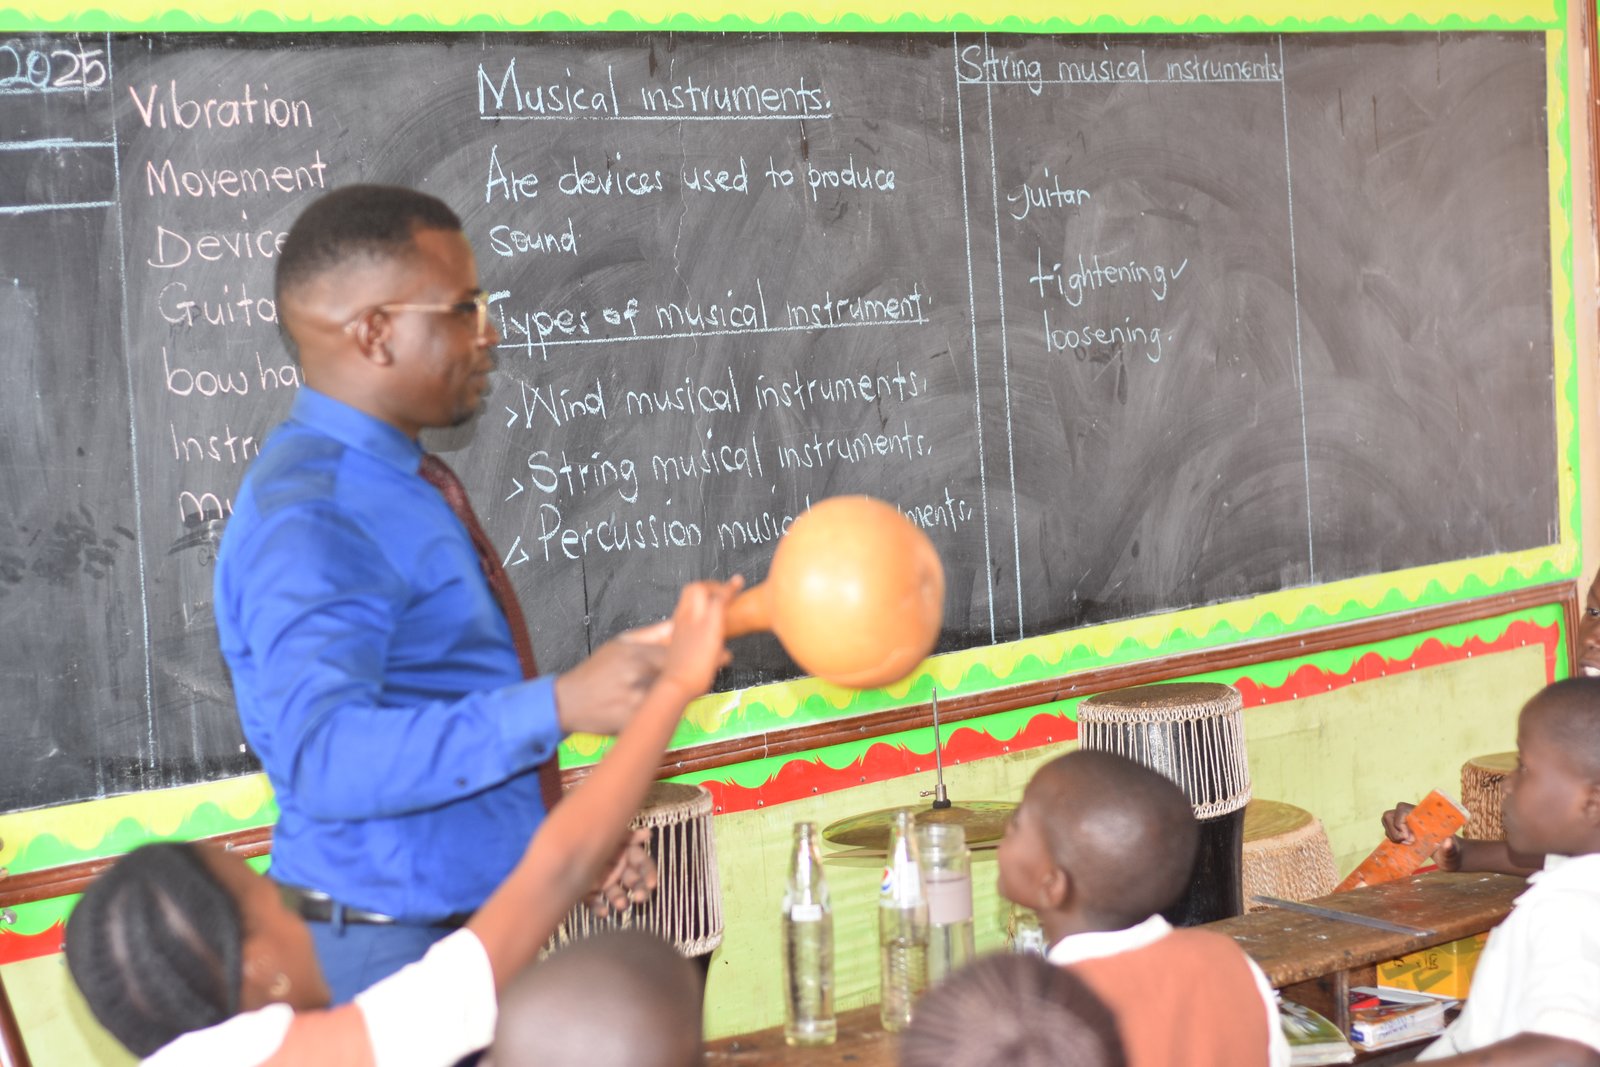 2025
Vibration
Movement
Device
Guita
bow ha
Instr
Mu
Musical instruments.
Are devices used to produce
sound
Types of musical instrument.
>Wind musical instruments.
>String musical instruments.
Percussion music ments.
String musical instruments.
guitar
tightening✓
loosening.